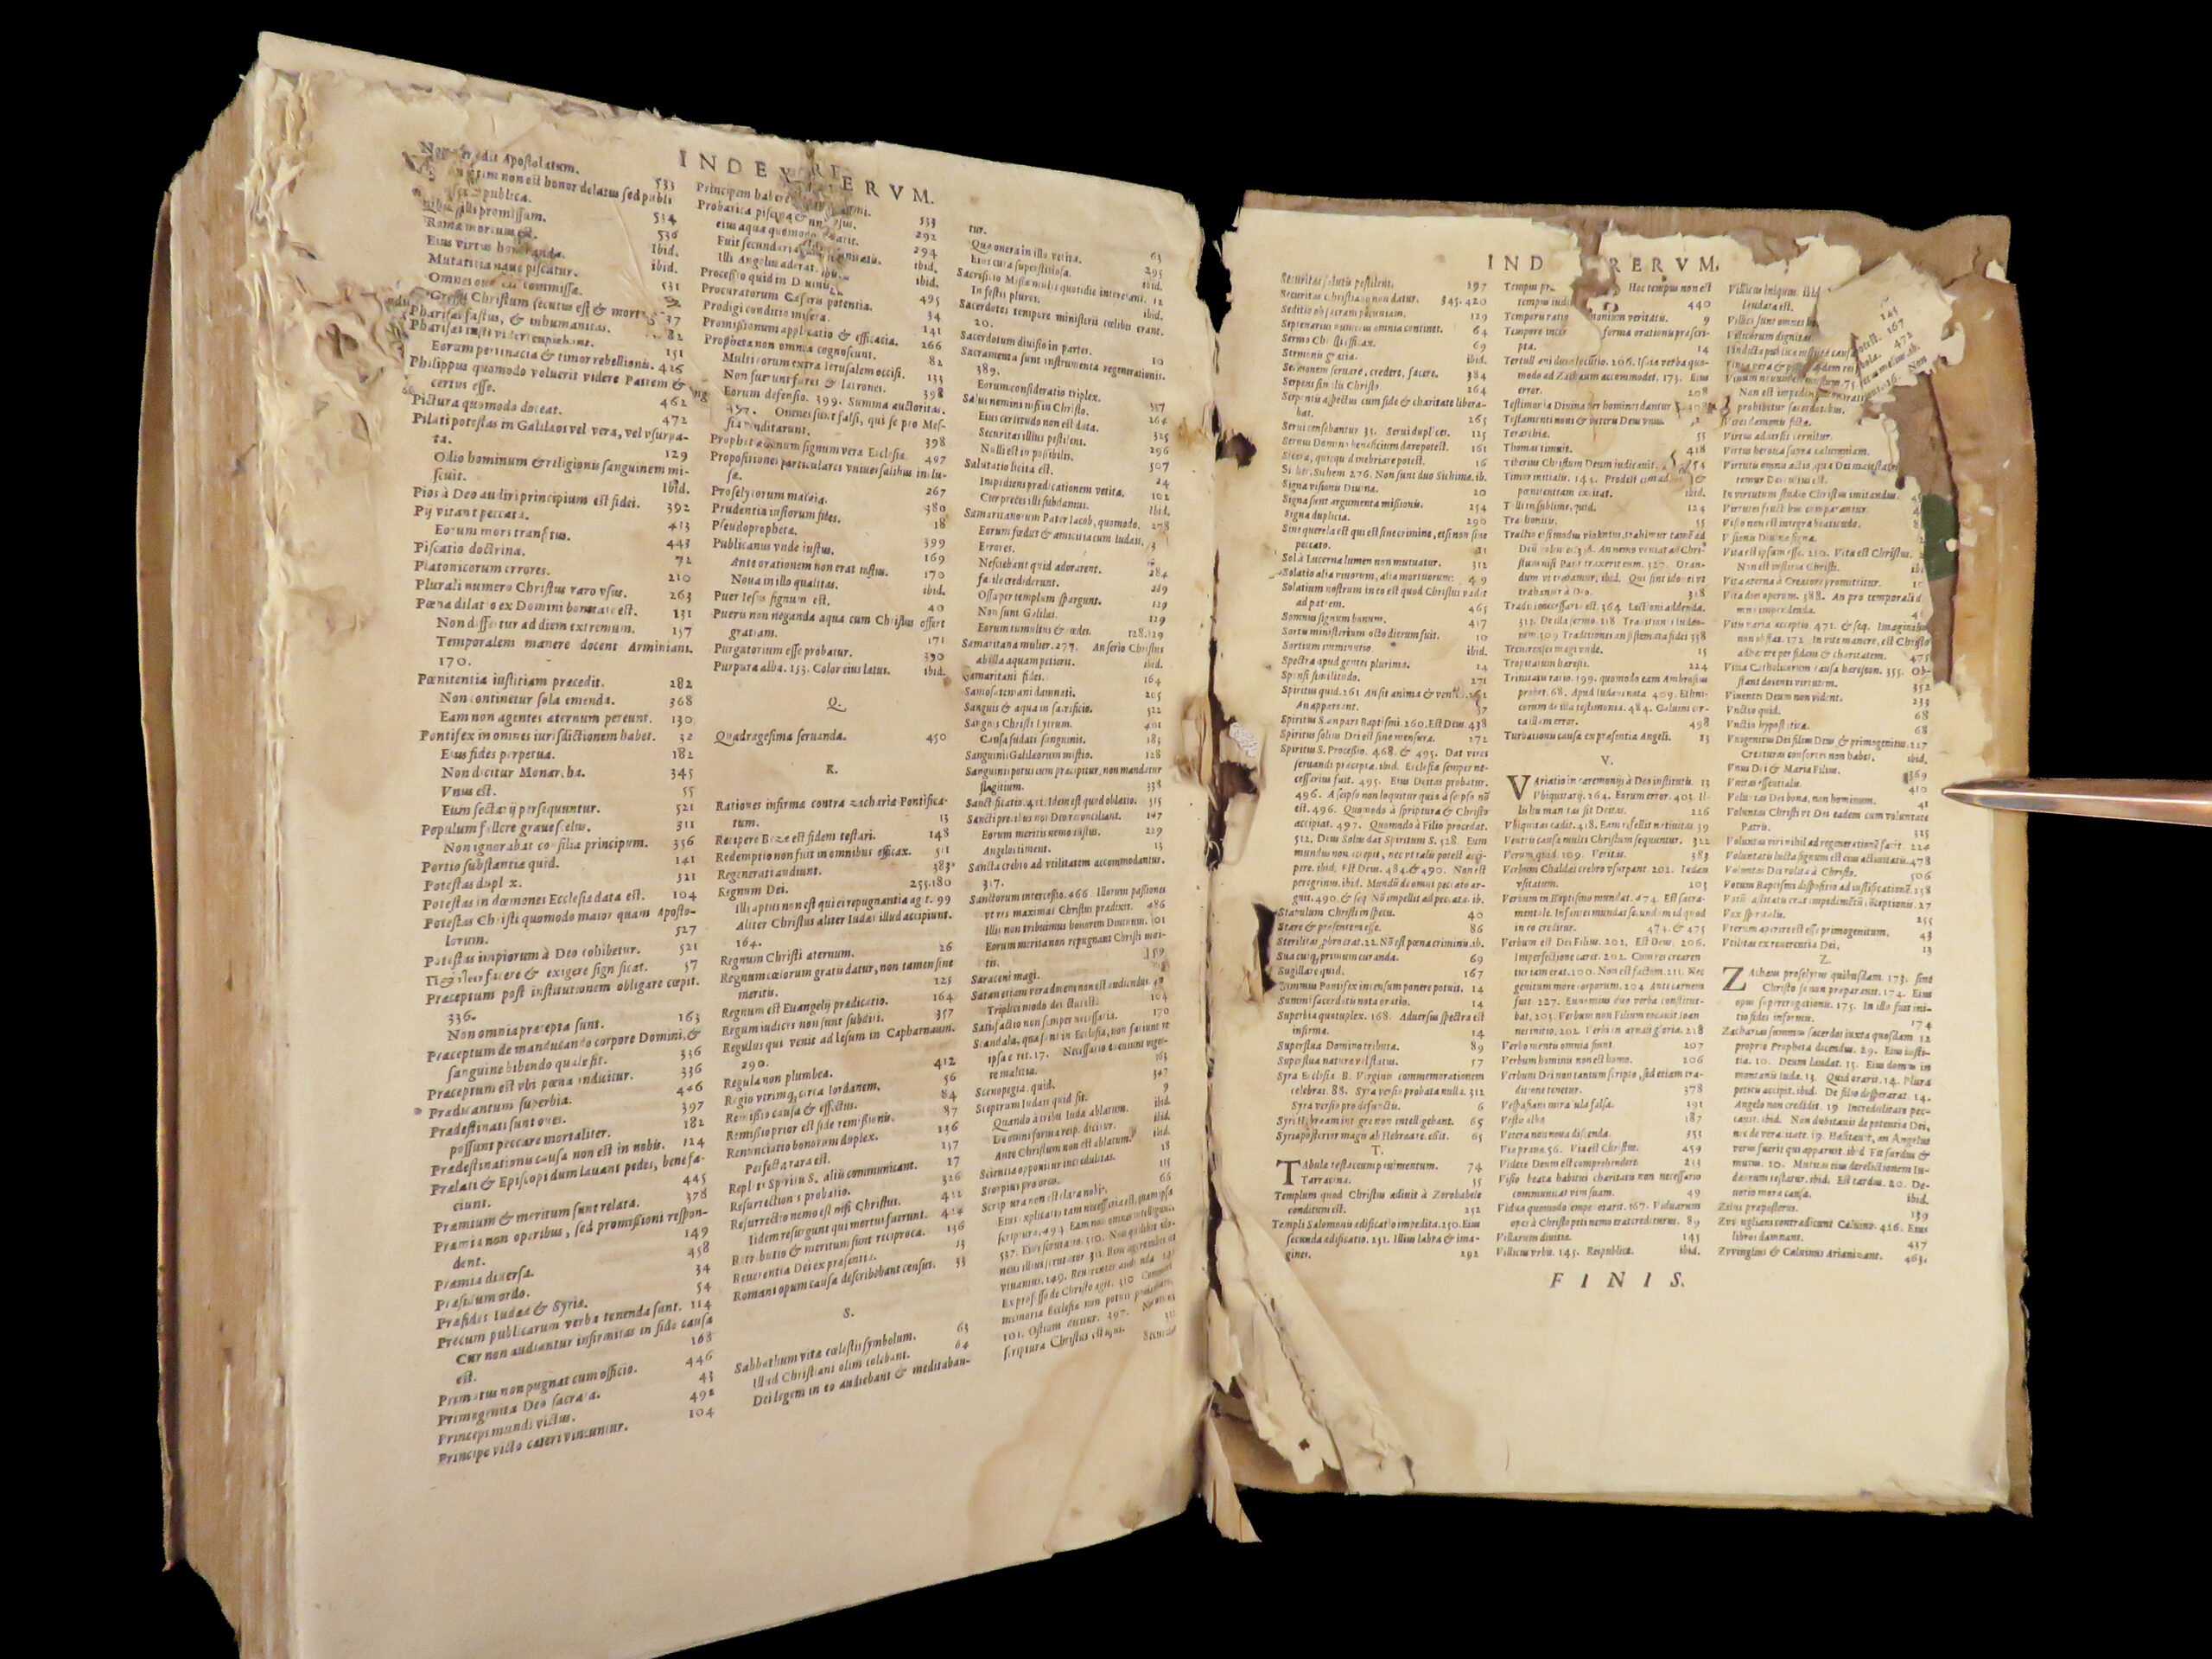 INDEX RERVM.
Apostolatum. 533
non est honor delatus sed publi
publica. 534
illi promissum. 536
Roma mortuus est. Ibid.
Eius virtus honoranda. ibid.
Mutatitia naue piscatur. 531
Omnes oues commissa.
Christum secutus est & 37
Pharisai fastus, & inhumanitas. 82
Pharisai iusti videri cupiebant. 151
Eorum pertinacia & timor rebellionis. 426
Philippus quomodo voluerit videre Patrem &
certus esse. 462
Pictura quomodo doceat. 472
Pilati potestas in Galilaos vel vera, vel vsurpa-
ta. 129
Odio hominum & religionis sanguinem mi-
scuit. Ibid.
Pios à Deo audiri principium est fidei. 392
Pij vitant peccata. 413
Eorum mors transitus. 443
Piscatio doctrina. 72
Platonicorum errores. 210
Plurali numero Christus raro vsus. 263
Pœna dilatio ex Domini bonitate est. 131
Non differtur ad diem extremum. 157
Temporalem manere docent Arminiani.
170.
Pœnitentia iustitiam præcedit. 282
Non continetur sola emenda. 368
Eam non agentes æternum pereunt. 130
Pontifex in omnes iurisdictionem habet. 32
Eius fides perpetua. 182
Non dicitur Monarcha. 345
Vnus est. 55
Eum sectarij persequuntur. 521
Populum fallere graue scelus. 311
Non ignorabat consilia principum. 356
Portio substantiæ quid. 141
Potestas duplex. 321
Potestas in dæmones Ecclesia data est. 104
Potestas Christi quomodo maior quam Aposto-
lorum. 527
Potestas impiorum à Deo cohibetur. 521
facere & exigere significat. 57
Præceptum post institutionem obligare cœpit.
336.
Non omnia præcepta sunt. 163
Præceptum de manducando corpore Domini, &
sanguine bibendo quale sit. 336
Præceptum est vbi pœna indicitur. 336
Prædicantum superbia. 446
Prædestinati sunt oues. 397
possunt peccare mortaliter. 182
Prædestinationis causa non est in nobis. 124
Prælati & Episcopi dum lauant pedes, benefa-
ciunt. 445
Præmium & meritum sunt relata. 378
Præmia non operibus, sed promissioni respon-
dent. 149
Præmia diuersa. 458
Præsidium ordo. 34
Præsides Iudææ & Syria. 54
Precum publicarum verba tenenda sunt. 114
Cur non audiantur infirmitas in fide causa
est. 168
Primatus non pugnat cum officio. 446
Primogenita Deo sacrata. 43
Princeps mundi victus. 492
Principe victo cæteri vincuntur. 104
Principem habere
Probatica piscina 533
eius aqua quomodo 292
Fuit secundaria 294
Illi Angelus aderat. ibid.
Processio quid in Diuinis ibid.
Procuratorum Cæsaris potentia. 495
Prodigi conditio misera. 34
Promissionum applicatio & efficacia. 141
Propheta non omnia cognoscunt. 266
Multi eorum extra Ierusalem occisi. 82
Non fuerunt fures & latrones. 133
Eorum defensio. 399. Summa auctoritas. 398
397. Omnes sunt falsi, qui se pro Mes-
sia venditarunt. 398
Prophetarum signum vera Ecclesia. 497
Propositiones particulares vniuersalibus inclu-
sæ. 267
Proselytorum materia. 380
Prudentia iustorum fides. 18
Pseudopropheta. 399
Publicanus vnde iustus. 169
Ante orationem non erat iustus. 170
Noua in illo qualitas. ibid.
Puer Iesus signum est. 40
Pueris non neganda aqua cum Christus offert
gratiam. 171
Purgatorium esse probatur. 390
Purpura alba. 153. Color eius latus. ibid.
Q.
Quadragesima seruanda. 450
R.
Rationes infirma contra Zacharia Pontifica-
tum. 13
Recipere Beza est fidem testari. 148
Redemptio non fuit in omnibus efficax. 511
Regenerati audiunt. 383
Regnum Dei. 255.180
Illi aptus non est qui ei repugnantia agit. 99
Aliter Christus aliter Iudæi illud accipiunt.
164.
Regnum Christi æternum. 26
Regnum cœlorum gratis datur, non tamen sine
meritis. 125
Regnum est Euangelij prædicatio. 164
Regum iudices non sunt subditi. 357
Regulus qui venit ad Iesum in Capharnaum.
290. 412
Regula non plumbea. 56
Regio vtrimque circa Iordanem. 84
Remissio causa & effectus. 87
Remissio prior est fide remissionis. 136
Renunciatio bonorum duplex. 137
Perfecta rara est. 17
Repleti Spiritu S. aliis communicant. 326
Resurrectionis probatio. 412
Resurrectio nemo est nisi Christus. 414
Iidem resurgunt qui mortui fuerunt. 136
Retributio & meritum sunt reciproca. 13
Reuerentia Dei ex præsentia. 33
Romani opum causa describebant censum.
S.
Sabbathum vitæ cœlestis symbolum. 63
Illud Christiani olim colebant. 64
Dei legem in eo audiebant & meditaban-
tur. 63
Quæ onera in illo vetita. 295
Eius cura superstitiosa. ibid.
Sacrificio Missa multi quotidie intererant. 12
In festis plures. ibid.
Sacerdotes tempore ministerij cœlibes erant.
20.
Sacerdotum diuisio in partes. 10
Sacramenta sunt instrumenta regenerationis.
389.
Eorum consideratio triplex. 337
Salus nemini nisi in Christo. 264
Eius certitudo non est data. 325
Securitas illius pestilens. 296
Nulli est impossibilis. 307
Salutatio licita est. 24
Impediens prædicationem vetita. 102
Cur preces illi subdamus. ibid.
Samaritanorum Pater Iacob, quomodo. 278
Eorum fœdus & amicitia cum Iudæis.
Errores.
Nesciebant quid adorarent. 284
facile crediderunt. 289
Ossa per templum spargunt. 129
Non sunt Galilæi. 129
Eorum tumultus & cædes. 128.129
Samaritana mulier. 277. An serio Christus
ab illa aquam petierit. ibid.
Samaritani fides. 164
Samosateniani damnati. 205
Sanguis & aqua in sacrificio. 522
Sanguis Christi Lytrum. 401
Causa sudati sanguinis. 183
Sanguinis Galilæorum mistio. 128
Sanguinis potus cum præcipitur, non mandatur
flagitium. 338
Sanctificatio. 421. Idem est quod oblatio. 515
Sancti precibus nos Deo reconciliant. 147
Eorum meritis nemo iustus. 229
Angelos timent. 13
Sancta crebro ad vtilitatem accommodantur.
317.
Sanctorum intercessio. 466. Illorum passiones
vt res maximas Christus prædixit. 486
Illis non tribuimus honorem Diuinum. 101
Eorum merita non repugnant Christi meri-
tis. 159
Saraceni magi.
Satan etiam vera dicens non est audiendus.
Triplici modo deiectus est. 104
Satisfactio non semper necessaria. 170
Scandala, quæ sunt in Ecclesia, non faciunt vt
ipsa erret. 17. Necessario eueniunt vigen-
te malitia. 163
Scenopegia quid. 307
Sceptrum Iudæis quid sit. 9
Quando à tribu Iuda ablatum. ibid.
De omni forma reip. dicitur. ibid.
Ante Christum non est ablatum. ibid.
Scientia opponitur incredulitas. 18
Scorpius pro orco. 115
Scriptura non est clara nobis. 66
Eius explicatio tam necessaria est, quam ipsa
scriptura. 494. Eam non omnes intelligunt.
vinamus. 149. Reuerenter
Ex professo de Christo agit. 310
memoria Ecclesia non potuit
101. Ostium dicitur. 397.
scriptura Christus est
IND RERVM.
Securitas salutis pestilens. 297
Securitas Christiano non datur. 345.420
Seditio ob sacram pecuniam. 129
Septenarius numerus omnia continet. 64
Sermo Christi efficax. 69
Sermonis gratia. ibid.
Sermonem seruare, credere, facere. 384
Serpens similis Christo. 264
Serpentis aspectus cum fide & charitate libera-
bat. 265
Serui censebantur 33. Serui duplices. 125
Seruus Domino beneficium dare potest. 161
Sicera, quicquid inebriare potest. 16
Sichar, Sichem 276. Non sunt duo Sichima. ib.
Signa visionis Diuina. 20
Signa sunt argumenta missionis. 254
Signa duplicia. 290
Sine querela est qui est sine crimine, etsi non sine
peccato. 11
Sol à Lucerna lumen non mutuatur. 312
Solatio alia viuorum, alia mortuorum. 409
Solatium nostrum in eo est quod Christus vadit
ad patrem. 465
Somnus signum bonum. 417
Sortu ministerium octo dierum fuit. 10
Sortium omnimutio. ibid.
Spectra apud gentes plurima. 14
Sponsi similitudo. 271
Spiritus quid. 261 An sit anima & ventus. 261
An appareant. 57
Spiritus S. an pars Baptismi. 260. Est Deus. 438
Spiritus solius Dei est sine mensura. 272
Spiritus S. Processio. 468. & 495. Dat vires
seruandi præcepta. ibid. Ecclesia semper ne-
cessarius fuit. 495. Eius Deitas probatur.
496. A seipso non loquitur quia à seipso nõ
est. 496. Quomodo à scriptura & Christo
accipiat. 497. Quomodo à Filio procedat.
512. Deus solus dat Spiritum S. 528. Eum
mundus non accepit, nec vt talis potest acci-
pere. ibid. Est Deus. 484. & 490. Non est
peregrinus. ibid. Mundũ de omni peccato ar-
guit. 490. & seq. Nõ impellit ad peccata. ib.
Stabulum Christi in specu. 40
Stare & præsentem esse. 86
Sterilitas opprobrium erat. 22. Nõ est pœna criminis. ib.
Sua cuique primum curanda. 69
Sugillare quid. 167
Summus Pontifex incensum ponere potuit. 14
Summi sacerdotis nota oratio. 14
Superbia quotuplex. 168. Aduersus spectra est
infirma. 14
Superflua Domino tributa. 89
Superflua natura vel status. 57
Syra Ecclesia B. Virginis commemorationem
celebrat. 88. Syra versio probata nulla. 312
Syra versio pro defunctis. 6
Syri Hebraam integre non intelligebant. 65
Syriaposterior magis ab Hebraa recessit. 65
T.
Tabula testaceum pauimentum. 74
Tarracina. 55
Templum quod Christus adiuit à Zorobabele
conditum est. 252
Templi Salomonis edificatio impedita. 250. Eius
secunda ædificatio. 251. Illius labra & ima-
gines. 292
Tempus Hoc tempus non est
tempus iudi 440
Temporu ratio veritatis. 9
Tempore incer forma orationis præscri-
pta. 14
Tertulliani duo lectitio. 206. Ipsa verba quo-
modo ad Zachæum accommodet. 173. Eius
error. 208
Testimonia Diuina per homines dantur
Testamenti noui & veteris Deus vnus.
Tetrarchia. 55
Thomas timuit. 418
Tiberius Christum Deum iudicauit. 54
Timor initialis. 143. Prodest
pœnitentiam excitat. ibid.
Tolli in sublime, quid. 124
Trachonitis. 55
Tractio etsi modus violentus, trahimur tamẽ ad
Deũ
stum nisi Pater traxerit eum. 327. Oran-
dum vt trahamur. ibid. Qui sint idonei vt
trahantur à Deo. 328
Traditio necessaria est. 364. Lectioni addenda.
512. De illa sermo. 118 Traditionis Iudæo-
rum. 309 Traditiones an sistema fidei 358
Treuirenses magi vnde. 15
Tropitarum hæresis. 224
Trinitatis ratio. 199. quomodo eam Ambrosius
probet. 68. Apud Iudæos nota 409. Ethni-
corum de illa testimonia. 484. Caluini cir-
ca illam error. 498
Turbationis causa ex præsentia Angeli. 13
V.
Variatio in ceremonijs à Deo instituta. 13
Vbiquitarij. 264. Eorum error. 403. Il-
lis humanitas sit Deitas. 226
Vbiquitas cadit. 418. Eam refellit natiuitas 39
Ventris causa multi Christum sequuntur. 322
Verum quid. 109. Veritas. 383
Verbum Chaldæi crebro vsurpant. 202. Iudæis
vsitatum. 203
Verbum in Baptismo mundat. 474. Est sacra-
mentale. Infantes mundat secundum id quod
in eo creditur. 474. & 475
Verbum est Dei Filius. 202. Est Deus. 206.
Imperfectione caret. 202. Cum res crearen-
tur iam erat. 200. Non est factum. 211. Nec
genitum more corporum. 204 Ante carnem
fuit. 227. Eunomius duo verba constitue-
bat. 203. Verbum non Filium vocauit Ioan
nes initio. 202. Verbi incarnati gloria. 218
Verbo mentis omnia fiunt. 207
Verbum hominis non est homo. 206
Verbum Dei non tantum scripto, sed etiam tra-
ditione tenetur. 378
Vespasiani miracula falsa. 191
Vestis alba. 187
Vetera non noua discenda. 353
Via prana. 56. Via est Christus. 459
Videre Deum est comprehendere. 213
Visio beata habitus charitatis non necessario
communicat vim suam. 49
Vidua quomodo imperarit. 167. Viduarum
opes à Christo petis nemo erat creditarus. 89
Villarum diuitia. 145
Villicus vrbis. 145. Reipublicæ. ibid.
Villicus iniquus. ibid
laudatus est. 145
Villici sunt omnes ho
Villicorum dignitas.
Vindicta publica iustitia causa potest. 167
472
Vinum nouum ce mustum. 73.
Non est impedim
prohibitur sacerdotibus.
Vires dæmonis fictæ.
Virtus aduersis cernitur.
Virtus heroica supra calumniam.
Virtutis omnis actio, qua Dei maiestatis
In virtutum studio Christus imitandus.
Virtutes fructibus comparantur.
Visio non est integra beatitudo.
Visionis Diuinæ signa.
Vita est ipsum esse. 210. Vita est Christus.
Non est iustitia Christi. ibi
Vita æterna à Creatore promittitur.
Vita dies operum. 388. An pro temporali
Vitis varia acceptio. 471. & seq. Imaginibus
non obstat. 172. In vite manere, est Christo
adhærere per fidem & charitatem. 475
Vitia Catholicorum causa hæreseon. 355. Ob-
stant docentis virtutem. 352
Viuentes Deum non vident. 233
Vnctio quid. 68
Vnctio hypostatica. 68
Vnigenitus Dei filius Deus & primogenitus. 227
Creaturas consortes non habet. ibid.
Vnus Dei & Mariæ Filius. 369
Vnitas essentialis. 410
Voluntas Dei bona, non hominum. 41
Voluntas Christi vt Dei eadem cum voluntate
Patris. 325
Voluntas viri nihil ad regenerationẽ facit. 224
Voluntatis lucta signum est eius actiuitatis. 478
Voluntas Dei reuelata à Christo. 506
Votum Baptismi dispositio ad iustificationẽ. 158
Votũ castitatis erat impedimẽtũ cõceptionis. 27
Vox spiritalis. 255
Vterum aperire est esse primogenitum. 43
Vtilitas ex reuerentia Dei. 13
Z.
Zachæus proselytus quibusdam. 173. sine
Christo se non præparauit. 174. Eius
opus supererogationis. 175. In illo fuit ini-
tio fides informis. 174
Zacharias summus sacerdos iuxta quosdam 12
proprie Propheta dicendus. 29. Eius iusti-
tia. 10. Deum laudat. 15. Eius domus in
montanis Iuda. 13. Quid orarit. 14. Plura
petiit accipit. ibid. De filio desperarat. 14.
Angelo non credidit. 19 Incredulitate pec-
cauit. ibid. Non dubitauit de potentia Dei,
nec de veritate. 19. Hæsitauit, an Angelus
verus fuerit qui apparuit. ibid Fit surdus &
mutus. 20. Mutitas eius derelictionem Iu-
dæorum testatur. ibid. Est tardus. 20. De-
uotio mora causa. ibid.
Zelus præposterus. 139
Zvvinglianis contradicunt Caluino. 426. Eius
libros damnant. 437
Zvvinglius & Caluinus Arianizant. 463.
FINIS.